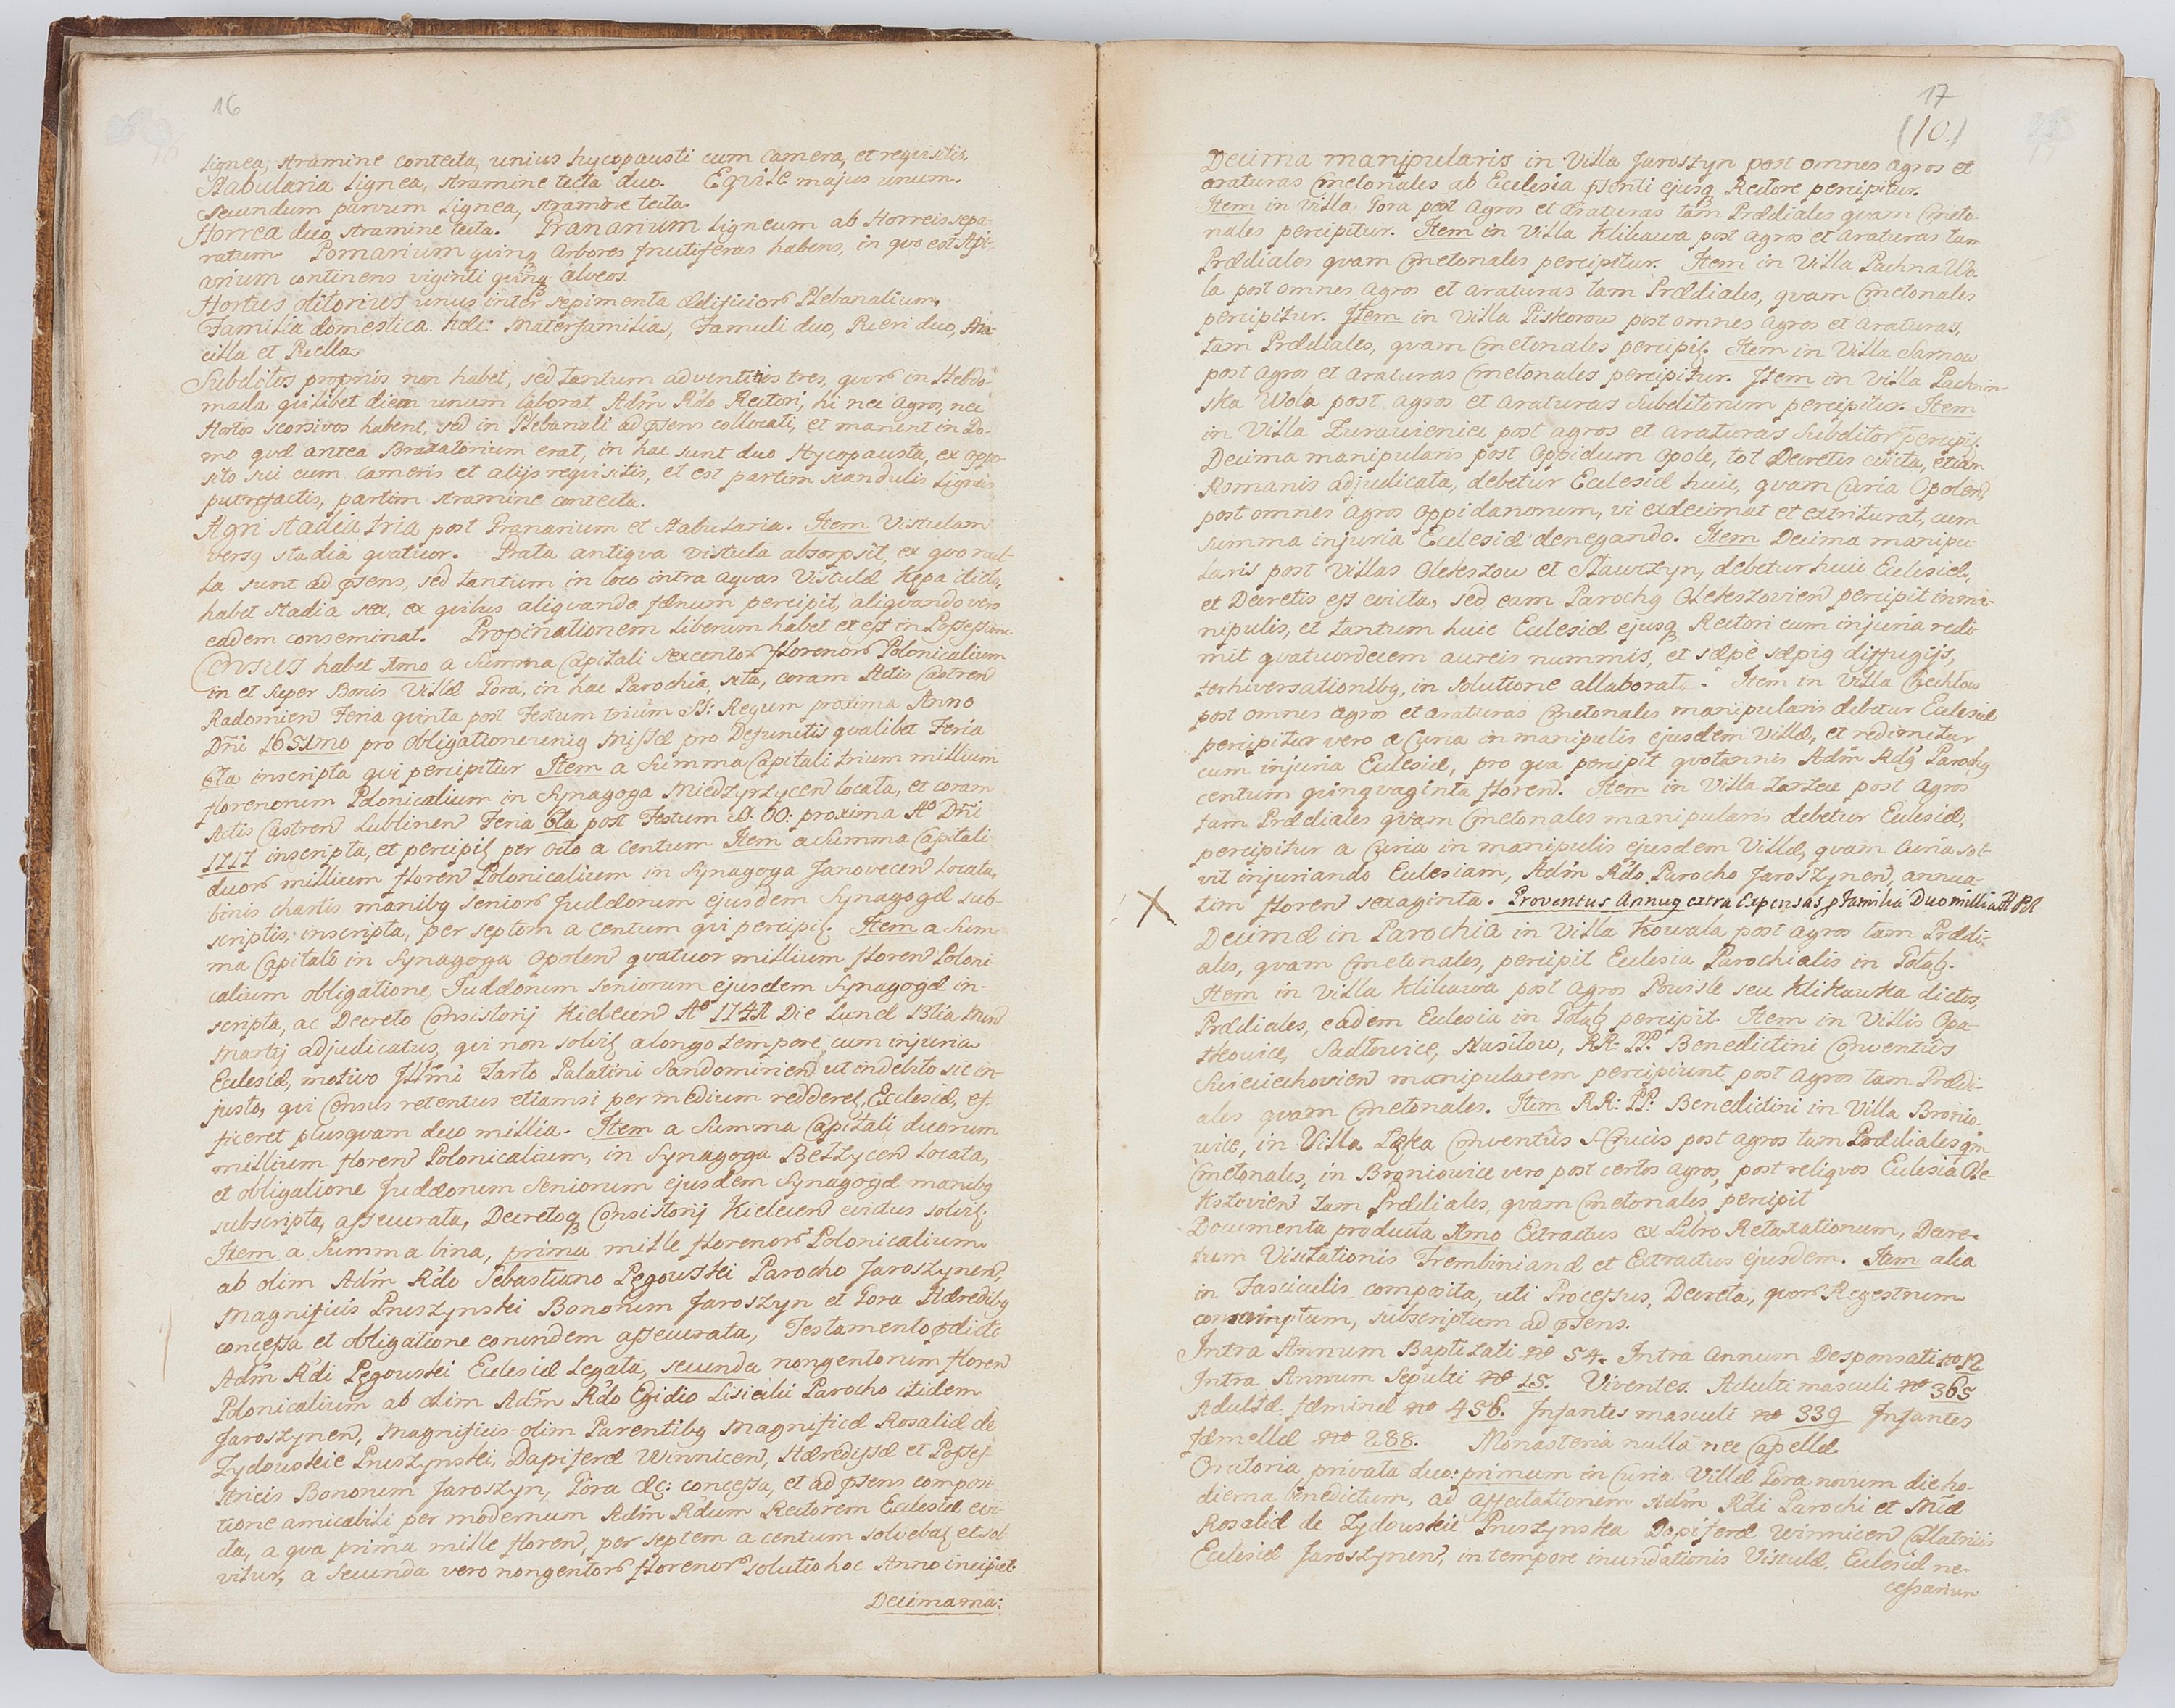 16
Lignea, stramine contecta, unius hypopausti cum Camera, et requisitis.
Stabularia Lignea, stramine tecta duo. Eqvile majus unum.
Secundum parvum Lignea, stramine tecta.
Horrea duo stramine tecta. Granarium Ligneum ab Horreis sepa-
ratum. Pomarium qvinq arbores fructiferas habens, in qvo est Api-
arium continens viginti qvinq alveos.
Hortus olitorius unus inter sepimenta ædificiorũ Plebanalium.
Familia domestica hæc: Materfamilias, Famuli duo, Pueri duo, An-
cilla et Puella.
Subditos proprios non habet, sed tantum adventitios tres, qvorũ in Hebdo-
mada qvilibet diem unum laborat Adm̃ R̃do Rectori, hi nec agros, nec
Hortos scorsivos habent, sed in Plebanali ad p̃sens collocati, et manent in Do-
mo qvæ antea Braxatorium erat, in hac sunt duo Hypocausta, ex oppo-
sito sui cum cameris et alijs reqvisitis, et est partim scandulis Ligneis
putrefactis, partim stramine contecta.
Agri stadia tria post Granarium et Stabularia. Item Vistulam
versq stadia qvatuor. Prata antiqva Vistula absorpsit, ex qvo nul-
la sunt ad p̃sens, sed tantum in loco intra aqvas Vistulæ Kępa dicto,
habet stadia sex, ex qvibus aliqvando fænum percipit, aliqvando vero
eadem conseminat. Propinationem Liberam habet et est in Possessione.
Census habet 1mo a Summa Capitali sexcentorũ florenorũ Polonicalium
in et super Bonis Villæ Gora, in hac Parochia sita, coram Actis Castren̄
Radomien̄ Feria qvinta post Festum trium SS: Regum proxima Anno
Dñi 1651mo pro obligatione uniq Missæ pro Defunctis qvalibet Feria
6ta inscripta qvi percipitur Item a Summa Capitali trium millium
florenorum Polonicalium in Synagoga Miedzyrzycen̄ locata, et coram
Actis Castren̄ Lublinen̄ Feria 6ta post Festum O. OO: proxima Aº Dñi
1717 inscripta, et percipit per octo a centum Item a Summa Capitali
duorũ millium floren̄ Polonicalium in Synagoga Janovecen̄ Locata,
binis chartis manibq seniorũ Judæorum ejusdem Synagogæ sub-
scriptis, inscripta, per septem a centum qvi percipit. Item a Sum-
ma Capitali in Synagoga Opolen̄ qvatuor millium floren̄ Poloni-
calium obligatione Judæorum seniorum ejusdem Synagogæ in-
scripta, ac Decreto Consistorij Kielcen̄ Aº 1741 Die Lunæ 13tia Men̄
Martij adjudicatus, qvi non solvit a longo tempore, cum injuria
Ecclesiæ, motivo Illm̃i Tarło Palatini Sandomirien̄ ut indebito sic in-
justo, qvi Census retentus etiamsi per medium redderet Ecclesiæ, ef-
ficeret plusqvam duo millia. Item a Summa Capitali duorum
millium floren̄ Polonicalium, in Synagoga Bełzycen̄ Locata,
et obligatione Judæorum seniorum ejusdem Synagogæ manibq
subscripta, assecurata, Decretoq Consistorij Kielcen̄ evictus solvit.
Item a Summa bina, prima mille florenorũ Polonicalium
ab olim Adm̃ R̃do Sebastiano Pęgowski Parocho Jaroszynen̄,
Magnificis Pruszynski Bonorum Jaroszyn et Gora Hæredibq
concessa et obligatione eorundem assecurata, Testamento p̃dicti
Adm̃ R̃di Pęgowski Ecclesiæ Legata, secunda nongentorum floren̄
Polonicalium ab olim Adm̃ R̃do Egidio Lisiecki Parocho itidem
Jaroszynen̄, Magnificis olim Parentibq Magnificæ Rosaliæ de
Zydowskie Pruszynski, Dapiferæ Winnicen̄, Hæredissæ et Posses-
stricis Bonorum Jaroszyn, Gora &c: concessa, et ad p̃sens composi-
tione amicabili per modernum Adm̃ R̃dum Rectorem Ecclesiæ evi-
cta, a qva prima mille floren̄, per septem a centum solvebat et sol-
vitur, a secunda vero nongentorũ florenorũ solutio hoc Anno incipiet.
Decima ma:
17
(10.)
Decima manipularis in Villa Jaroszyn post omnes agros et
araturas Cmetonales ab Ecclesia p̃senti ejusq Rectore percipitur.
Item in Villa Gora post agros et araturas tam Prædiales qvam Cmeto-
nales percipitur. Item in Villa Klikawa post agros et araturas tam
Prædiales qvam Cmetonales percipitur. Item in Villa Pachna Wo-
la post omnes agros et araturas tam Prædiales, qvam Cmetonales
percipitur. Item in Villa Piskorow post omnes agros et araturas,
tam Prædiales, qvam Cmetonales percipit. Item in Villa Sarnow
post agros et araturas Cmetonales percipitur. Item in Villa Pachnin-
ska Wola post agros et araturas Subditorum percipitur. Item
in Villa Zurawieniec post agros et araturas Subditorũ percipit.
Decima manipularis post Oppidum Opole, tot Decretis evicta, etiam
Romanis adjudicata, debetur Ecclesiæ huic, qvam Curia Opolen̄
post omnes agros oppidanorum, vi exdecimat et extriturat, cum
summa injuria Ecclesiæ denegando. Item Decima manipu-
laris post Villas Olekszow et Sławczyn, debetur huic Ecclesiæ,
et Decretis est evicta, sed eam Parochq Olekszovien̄ percipit in ma-
nipulis, et tantum huic Ecclesiæ ejusq Rectori cum injuria redi-
mit qvatuordecem aureis nummis, et sæpè sæpiq diffugijs,
terhiversationibq, in solutione allaborat. Item in Villa Chechłow
post omnes agros et araturas Cmetonales manipularis debetur Ecclesiæ
percipitur vero a Curia in manipulis ejusdem Villæ, et redimitur
cum injuria Ecclesiæ, pro qva percipit qvotannis Adm̃ R̃dq Parochq
centum qvinqvaginta floren̄. Item in Villa Zarzecze post agros
tam Prædiales qvam Cmetonales manipularis debetur Ecclesiæ,
percipitur a Curia in manipulis ejusdem Villæ, qvam Curia sol-
vit injuriando Ecclesiam, Adm̃ R̃do Parocho Jaroszynen̄, annua-
X tim floren̄ sexaginta. Proventus Annuq extra Expensas p Familia Duo millia fl Pol
Decimæ in Parochia in Villa Kowala post agros tam Prædi-
ales, qvam Cmetonales, percipit Ecclesia Parochialis in Gołąb.
Item in Villa Klikawa post agros Powisle seu Klikawka dictos,
Prædiales, eadem Ecclesia in Gołąb percipit. Item in Villis Opa-
tkowice, Sadłowice, Nasiłow, RR: PP: Benedictini Conventûs
Sieciechovien̄ manipularem percipiunt post agros tam Prædi-
ales qvam Cmetonales. Item RR: PP: Benedictini in Villa Bronio-
wice, in Villa Łęka Conventûs S Crucis post agros tam Prædiales qm̃
Cmetonales, in Broniowice vero post certos agros, post reliqvos Ecclesia Ole-
kszovien̄ tam Prædiales, qvam Cmetonales percipit
Documenta producta 1mo Extractus ex Libro Retaxationum, Decre-
tum Visitationis Trembinianæ et Extractus ejusdem. Item alia
in Fasciculis composita, uti Processus, Decreta, qvorũ Regestrum
conscriptum, subscriptum ad p̃sens.
Intra Annum Baptizati nº 54. Intra Annum Desponsati nº 12
Intra Annum Sepulti nº 15. Viventes. Adulti masculi nº 365
Adultæ fæminæ nº 456. Infantes masculi nº 339 Infantes
fæmellæ nº 288. Monasteria nulla nec Capellæ
Oratoria privata duo: primum in Curia Villæ Gora novum die ho-
dierna benedictum, ad affectationem Adm̃ R̃di Parochi et Mcæ
Rosaliæ de Zydowskie Pruszynska Dapiferæ Winnicen̄ Collatricis
Ecclesiæ Jaroszynen̄, in tempore inundationis Vistulæ, Ecclesiæ ne-
cessarium